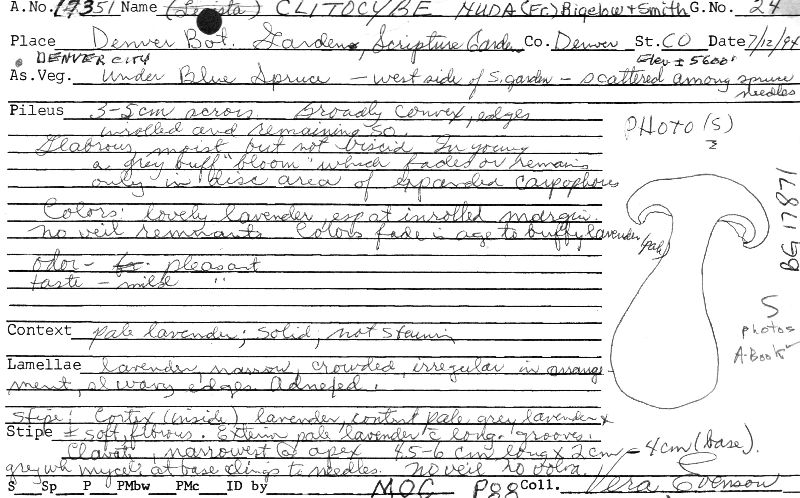 A.No. 17351 Name (Lepista) CLITOCYBE NUDA (Fr.) Bigelow + Smith G.No. 24
Place Denver Bot. Gardens, Scripture Garden Co. Denver St. CO Date 7/12/94
DENVER CITY Elev ± 5600'
As.Veg. Under Blue Spruce - west side of S. garden - scattered among spruce
needles
Pileus 3-5cm across Broadly convex, edges
inrolled and remaining so.
Glabrous, moist but not viscid. In young
a grey buff "bloom" which fades or remains
only in disc area of expanded carpophores
Colors: lovely lavender, esp at inrolled margin.
no veil remnants. Colors fade in age to buffy lavender (pale)
odor - pleasant
taste - mild "
Context pale lavender; solid, not staining
Lamellae lavender, narrow, crowded, irregular in arrange-
ment, sl wavy edges. Adnexed.
Stipe: Cortex (inside) lavender, context pale grey lavender &
Stipe ± soft, fibrous. Exterior pale lavender c long. grooves.
Clavate, narrowest @ apex 4.5-6 cm long x 2cm - 4cm (base).
grey wh mycel. at base clings to needles. no veil no volva
S Sp P PMbw PMc ID by MOG P88 Coll. Vera Evenson
PHOTO(S)
2
BG 17871
5
photos
A-Book